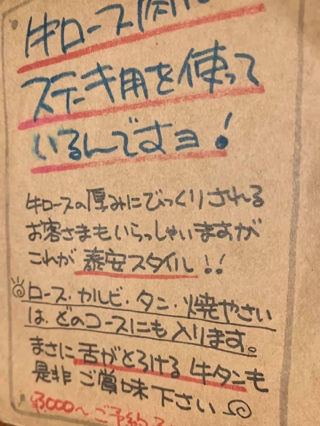 牛ロース
ステーキ用を使って
いるんですヨ！
牛ロースの厚みにびっくりされる
お客さまもいらっしゃいますが
これが 泰安スタイル！！
ロース・カルビ・タン・焼やさい
は、どのコースにも入ります。
まさに舌がとろける牛タンも
是非ご賞味下さい
¥3000〜ご予約